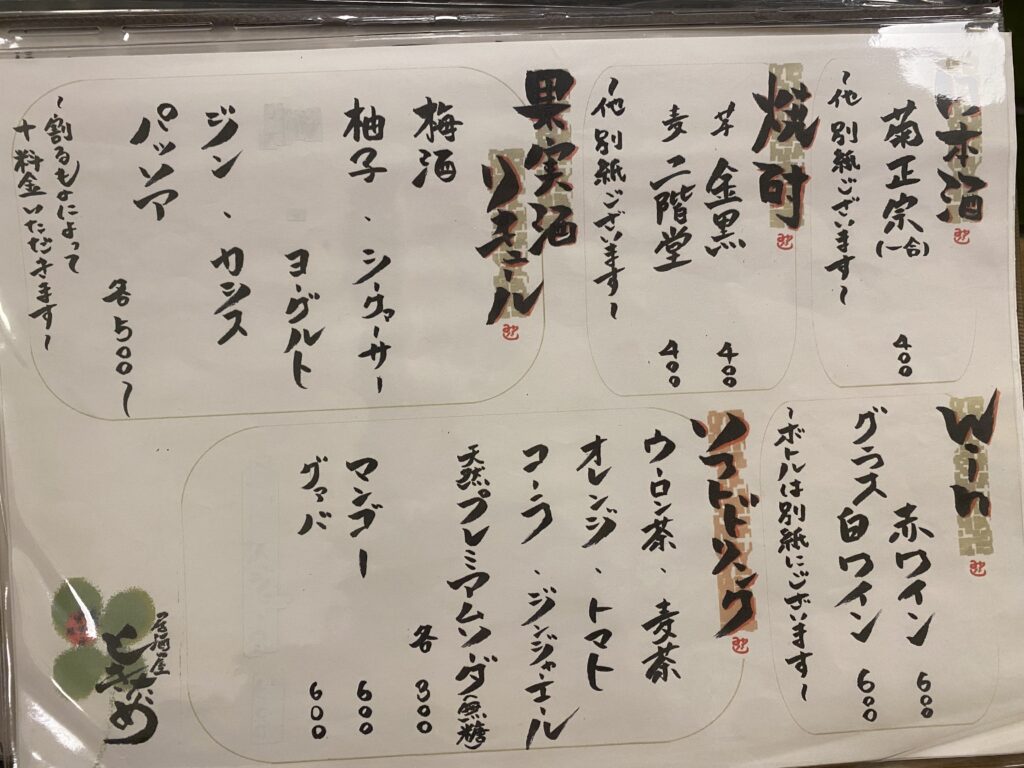 日本酒
菊正宗(一合) 400
〜他 別紙ございます〜
焼酎
芋 金黒 400
麦 二階堂 400
〜他 別紙ございます〜
果実酒
リキュール
梅酒
柚子、シークァーサー
ヨーグルト
ジン、カシス
パッソア
各500〜
〜割るものによって
+料金いただきます〜
Win
赤ワイン 600
グラス 白ワイン 600
〜ボトルは別紙にございます〜
ソフトドリンク
ウーロン茶、麦茶
オレンジ、トマト
コーラ、ジンジャーエール
天然プレミアムソーダ(無糖)
各 300
マンゴー 600
グァバ 600
居酒屋